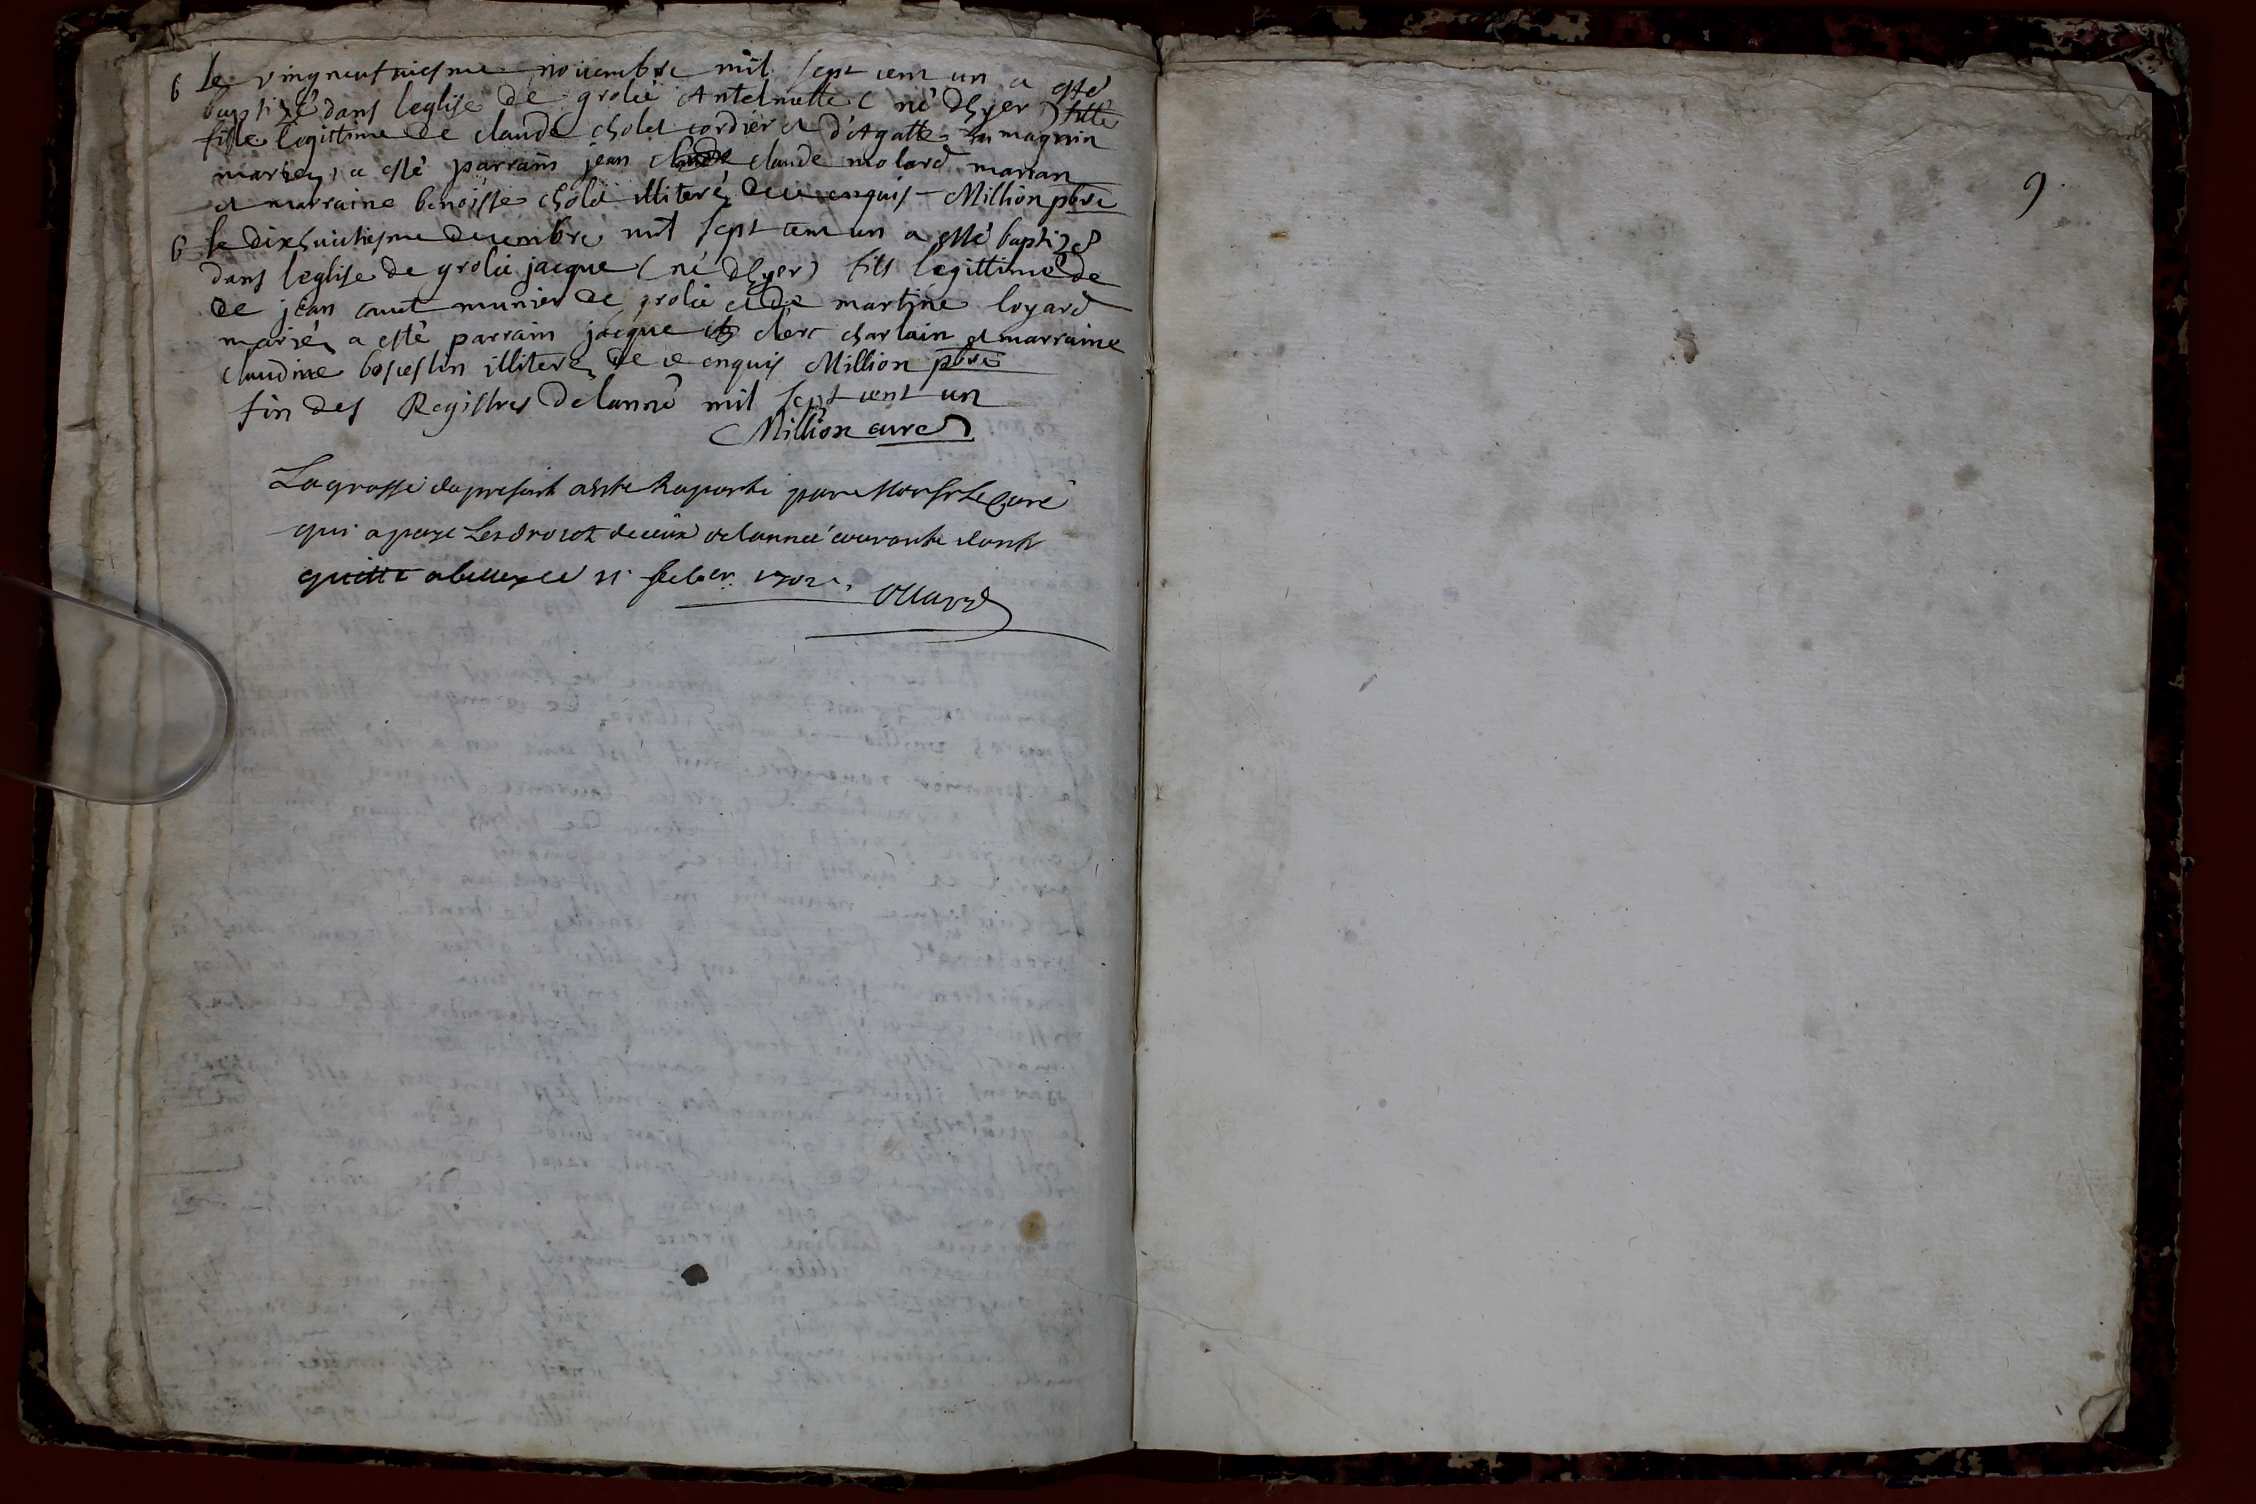 b le vingneufviesme novembre mil sept cent un a esté
baptizé dans leglise de grolée Antelmette ( né dhyer )
fille legittime de claude cholet cordier et d'Agatte magnin
mariez, a esté parrain jean claude molard manian
et marraine benoiste cholet illiterez de ce enquis Million pbre
b le dixhuictiesme decembre mil sept cent un a esté baptizé
dans leglise de grolée jacque ( né dhyer ) fils legittime de
de jean munier de grolée et de martine loyard
mariez a esté parrain jacque clerc charlain et marraine
claudine illiterez de ce enquis Million pbre
fin des Registres de lanné mil sept cent un
Million curé
La grosse du present a esté raporté par Monsr le Curé
qui a paye les droits de ceux de lannee courante dont
quitte a belley ce 11 feber. 1702.